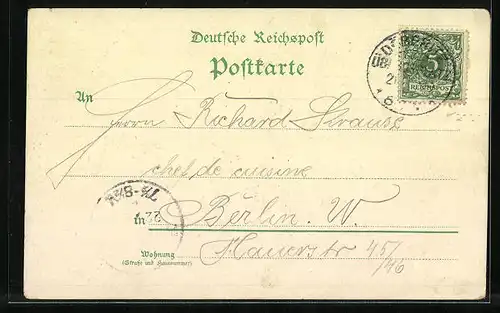 Deutsche Reichspost
Postkarte
5
REICHSPOST
An
Herrn Richard Strauss
chef de cuisine
in Berlin. W.
Wohnung
(Straße und Hausnummer)
45/46
7¼-8¼V